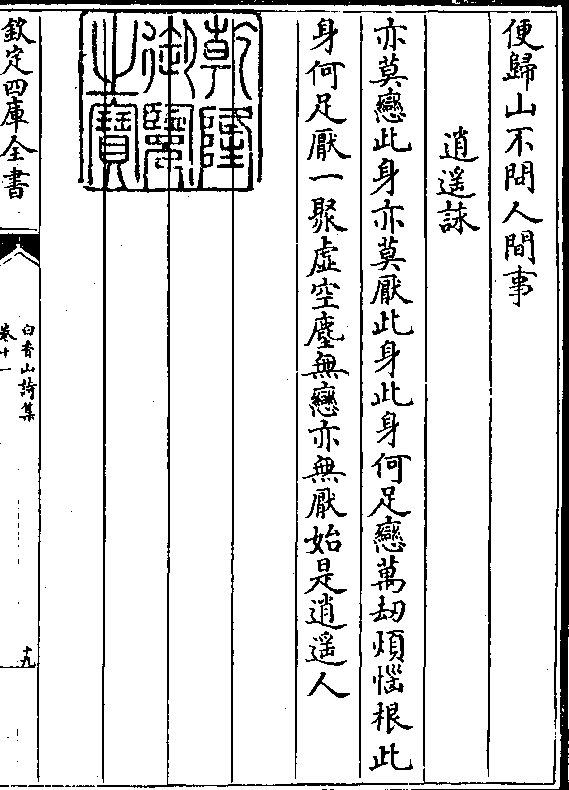 便歸山不問人間事
逍遥詠
亦莫戀此身亦莫厭此身此身何足戀萬劫煩惱根此
身何足厭一聚虛空塵無戀亦無厭始是逍遥人
乾隆御覽之寶
欽定四庫全書
白香山詩集
卷十一
十九